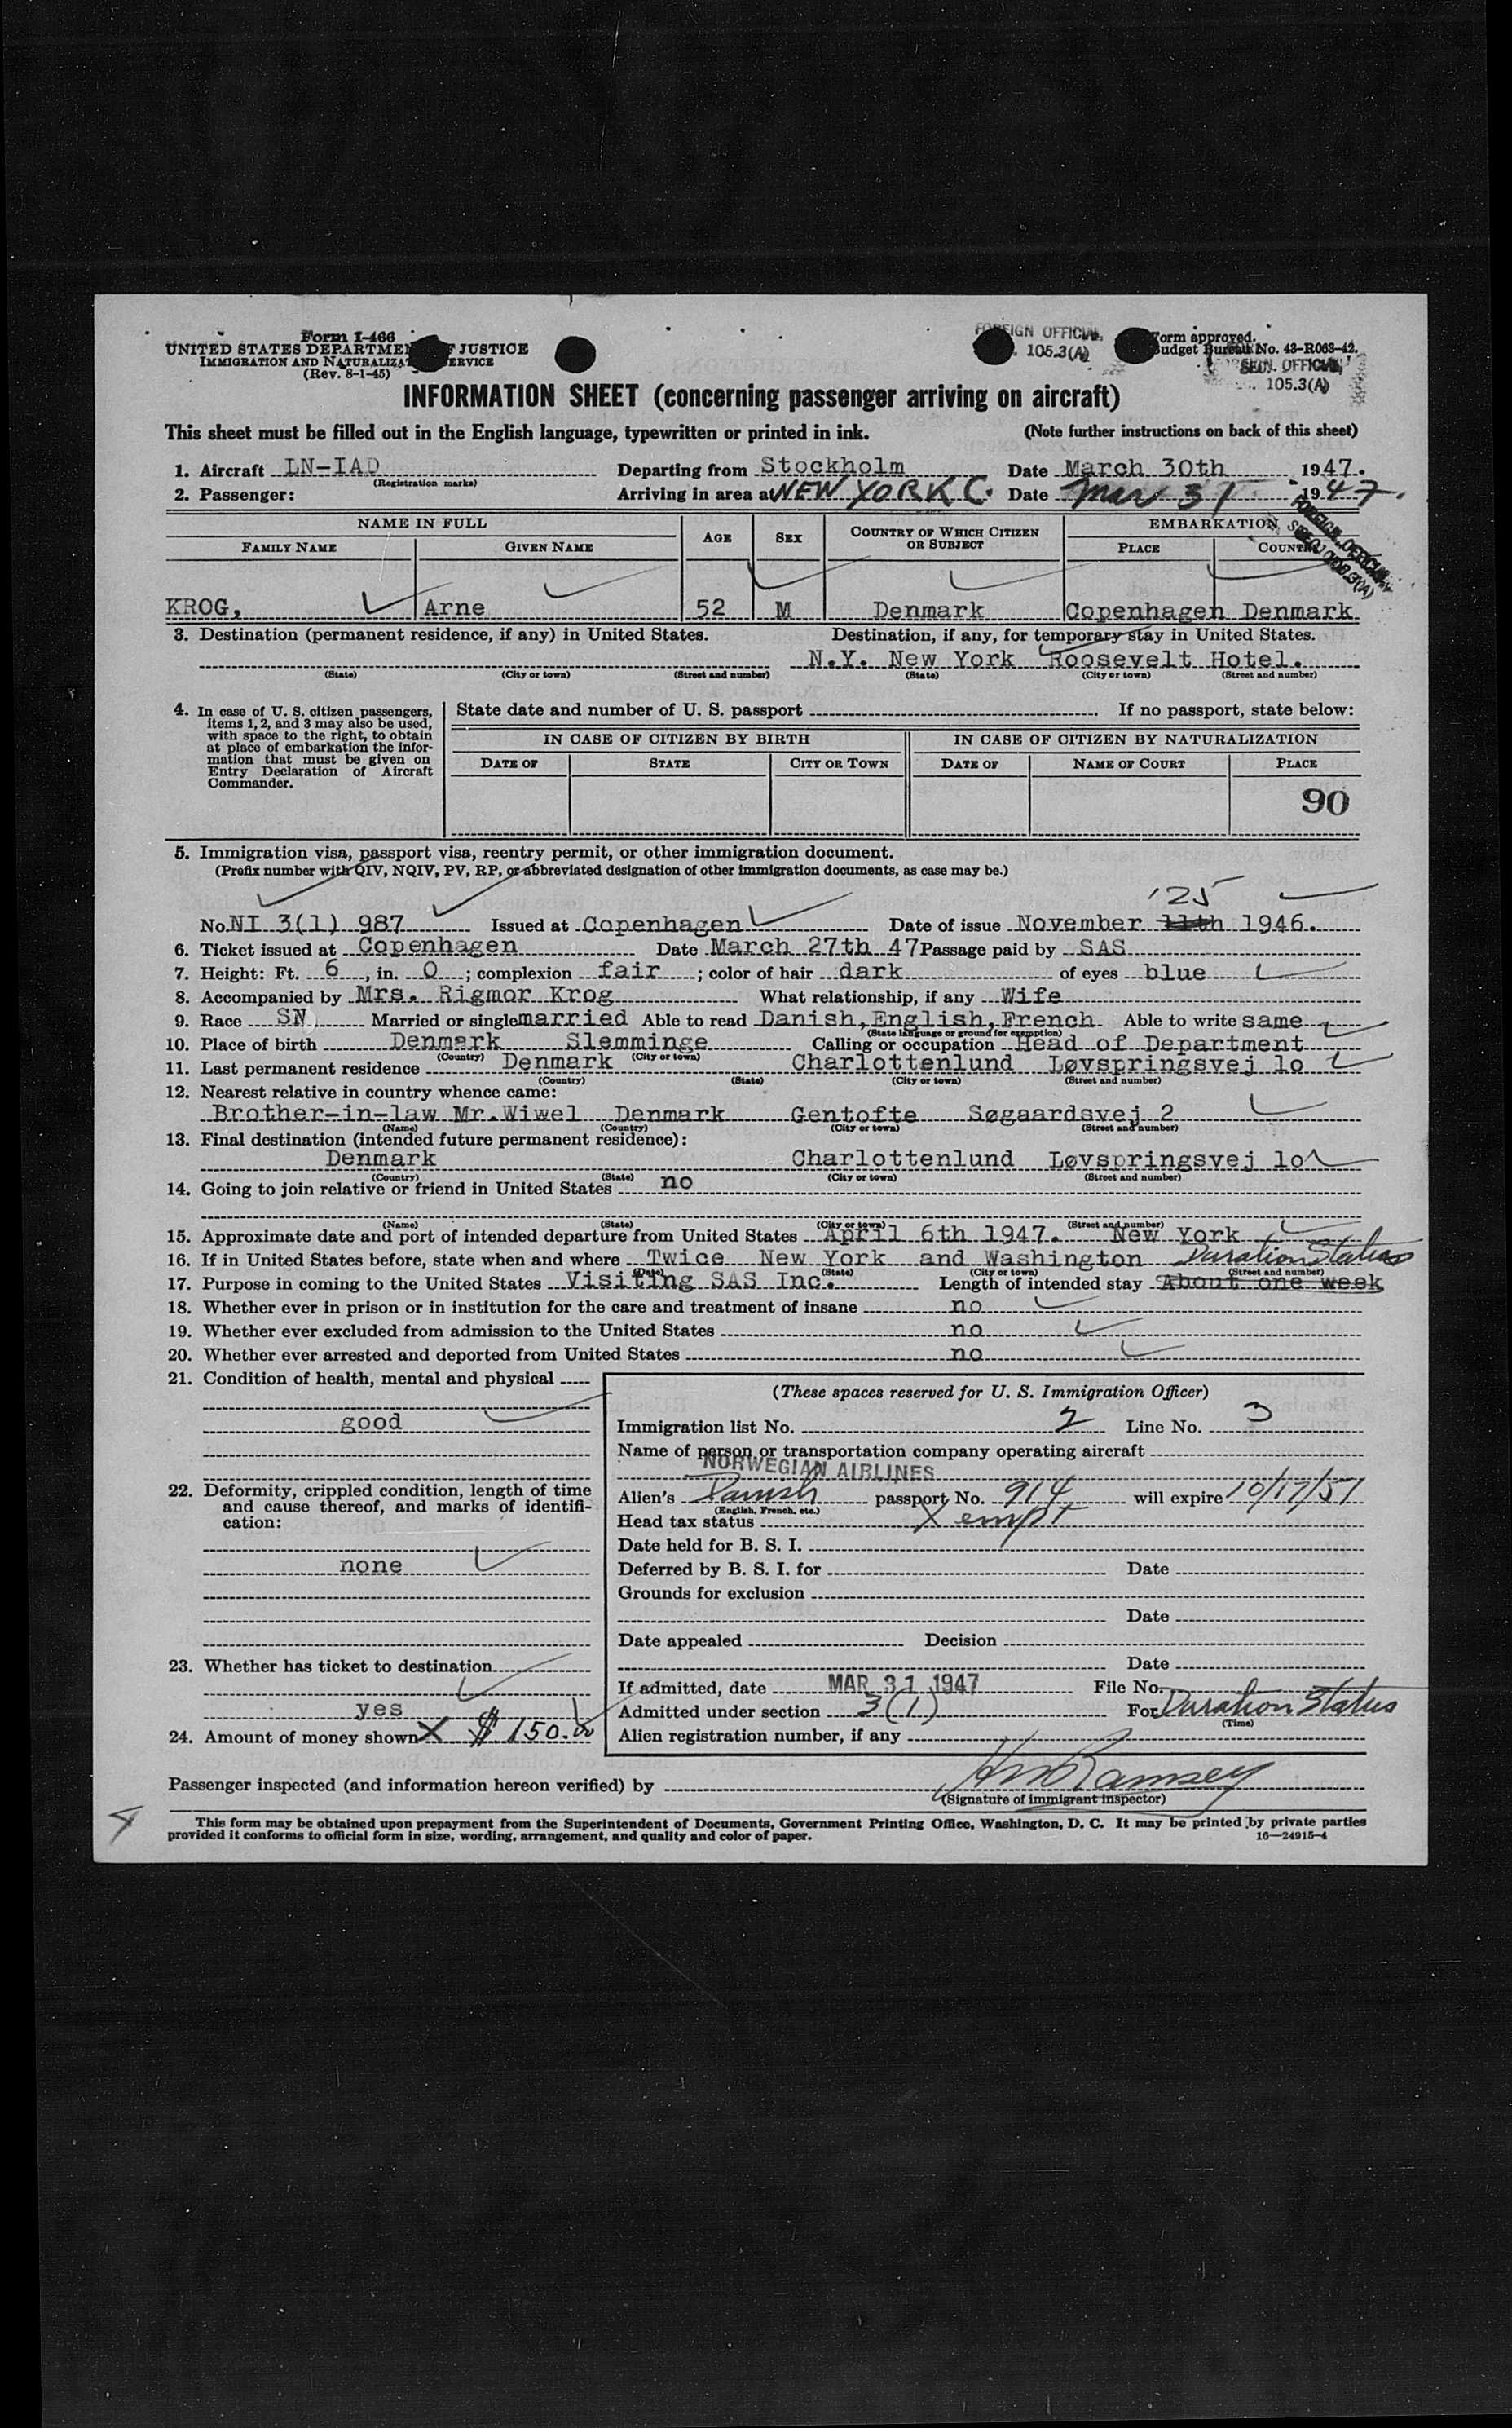 Form I-466
UNITED STATES DEPARTMENT OF JUSTICE
IMMIGRATION AND NATURALIZATION SERVICE
(Rev. 8-1-45)
FOREIGN OFFICIAL
105.3(A)
Form approved.
Budget Bureau No. 43-R063-42.
OFFICIAL
105.3(A)
INFORMATION SHEET (concerning passenger arriving on aircraft)
This sheet must be filled out in the English language, typewritten or printed in ink. (Note further instructions on back of this sheet)
1. Aircraft LN-IAD Departing from Stockholm Date March 30th 1947.
(Registration marks)
2. Passenger: Arriving in area at NEW YORK C. Date Mar 31 1947.
FOREIGN OFFICIAL
SEC. 105.3(A)
NAME IN FULL AGE SEX COUNTRY OF WHICH CITIZEN OR SUBJECT EMBARKATION
FAMILY NAME GIVEN NAME PLACE COUNTRY
KROG, Arne 52 M Denmark Copenhagen Denmark
3. Destination (permanent residence, if any) in United States. Destination, if any, for temporary stay in United States.
N.Y. New York Roosevelt Hotel.
(State) (City or town) (Street and number) (State) (City or town) (Street and number)
4. In case of U. S. citizen passengers, items 1, 2, and 3 may also be used, with space to the right, to obtain at place of embarkation the information that must be given on Entry Declaration of Aircraft Commander.
State date and number of U. S. passport If no passport, state below:
IN CASE OF CITIZEN BY BIRTH IN CASE OF CITIZEN BY NATURALIZATION
DATE OF STATE CITY OR TOWN DATE OF NAME OF COURT PLACE
90
5. Immigration visa, passport visa, reentry permit, or other immigration document.
(Prefix number with QIV, NQIV, PV, RP, or abbreviated designation of other immigration documents, as case may be.)
'25
No. NI 3(1) 987 Issued at Copenhagen Date of issue November 11th 1946.
6. Ticket issued at Copenhagen Date March 27th 47 Passage paid by SAS
7. Height: Ft. 6, in. 0; complexion fair; color of hair dark of eyes blue
8. Accompanied by Mrs. Rigmor Krog What relationship, if any Wife
9. Race SN Married or single married Able to read Danish, English, French Able to write same
(State language or ground for exemption)
10. Place of birth Denmark Slemminge Calling or occupation Head of Department
(Country) (City or town)
11. Last permanent residence Denmark Charlottenlund Løvspringsvej lo
(Country) (State) (City or town) (Street and number)
12. Nearest relative in country whence came:
Brother-in-law Mr.Wiwel Denmark Gentofte Søgaardsvej 2
(Name) (Country) (City or town) (Street and number)
13. Final destination (intended future permanent residence):
Denmark Charlottenlund Løvspringsvej lo
(Country) (State) (City or town) (Street and number)
14. Going to join relative or friend in United States no
(Name) (State) (City or town) (Street and number)
15. Approximate date and port of intended departure from United States April 6th 1947. New York
16. If in United States before, state when and where Twice New York and Washington Duration Status
(Date) (State) (City or town) (Street and number)
17. Purpose in coming to the United States Visiting SAS Inc. Length of intended stay About one week
18. Whether ever in prison or in institution for the care and treatment of insane no
19. Whether ever excluded from admission to the United States no
20. Whether ever arrested and deported from United States no
21. Condition of health, mental and physical
good
22. Deformity, crippled condition, length of time and cause thereof, and marks of identification:
none
23. Whether has ticket to destination
yes
24. Amount of money shown X $150.00
(These spaces reserved for U. S. Immigration Officer)
Immigration list No. 2 Line No. 3
Name of person or transportation company operating aircraft
NORWEGIAN AIRLINES
Alien's Danish passport No. 914 will expire 10/17/51
(English, French, etc.)
Head tax status Xempt
Date held for B. S. I.
Deferred by B. S. I. for Date
Grounds for exclusion
Date
Date appealed Decision
Date
If admitted, date MAR 31 1947 File No.
Admitted under section 3(1) For Duration Status
(Time)
Alien registration number, if any
Passenger inspected (and information hereon verified) by Ramsey
(Signature of immigrant inspector)
This form may be obtained upon prepayment from the Superintendent of Documents, Government Printing Office, Washington, D. C. It may be printed by private parties
provided it conforms to official form in size, wording, arrangement, and quality and color of paper. 16—24915-4